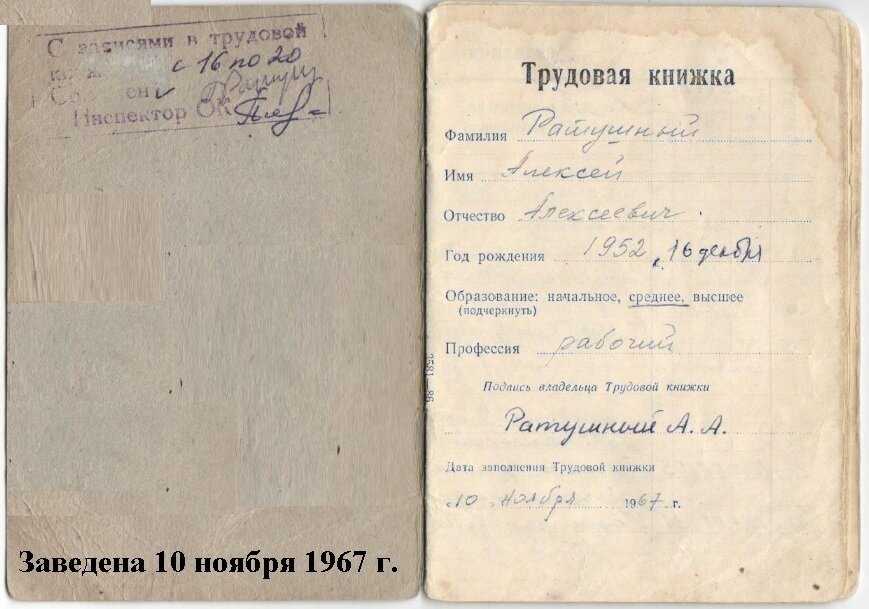 С записями в трудовой
с 16 по 20
Инспектор ОК
Заведена 10 ноября 1967 г.
Трудовая книжка
Фамилия Ратушный
Имя Алексей
Отчество Алексеевич.
Год рождения 1952, 16 декабря
Образование: начальное, среднее, высшее
(подчеркнуть)
Профессия рабочий
Подпись владельца Трудовой книжки
Ратушный А. А.
Дата заполнения Трудовой книжки
«10» ноября 1967 г.